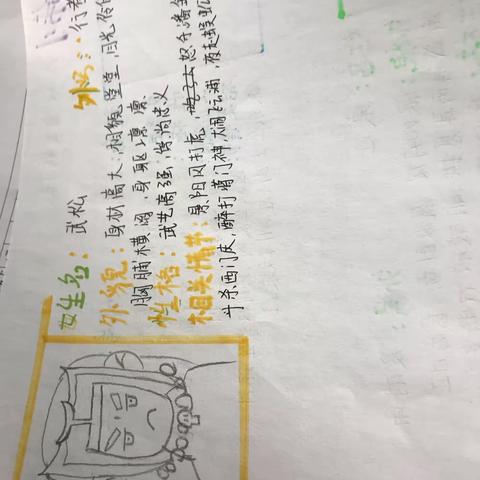 姓名：武松 外号：行者
外貌：身材高大，相貌堂堂，目光
胸脯横阔，身躯凛凛
性格：武艺高强，崇尚忠义
相关情节：景阳冈打虎，怒夺潘金
斗杀西门庆，醉打蒋门神，大闹飞云浦，夜走蜈蚣